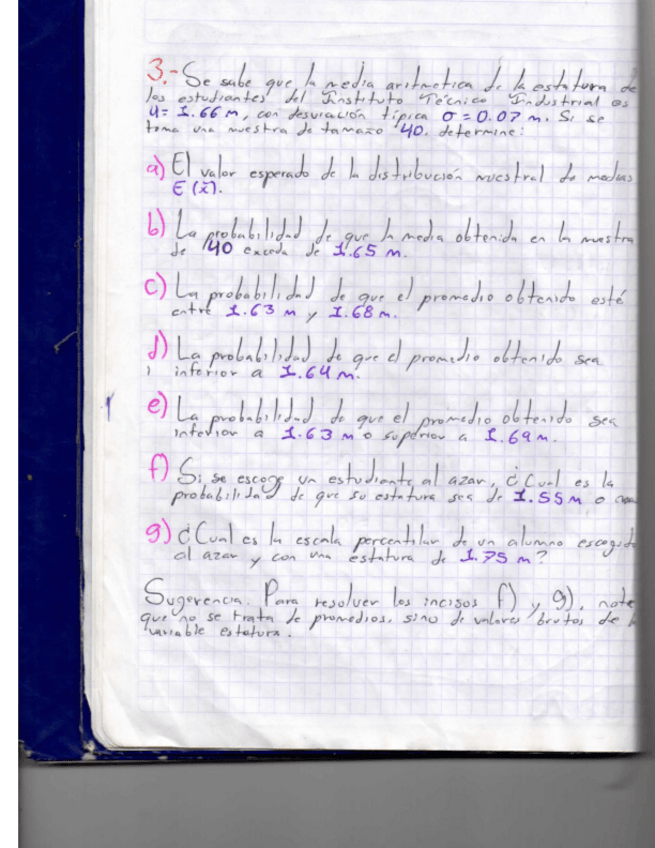 3.- Se sabe que la media aritmetica de la estatura de
los estudiantes del Instituto Técnico Industrial es
u= 1.66 m, con desviación típica σ = 0.07 m. Si se
toma una muestra de tamaño 40. determine:
a) El valor esperado de la distribución muestral de medias
E (x̄).
b) La probabilidad de que la media obtenida en la muestra
de 40 exceda de 1.65 m.
c) La probabilidad de que el promedio obtenido esté
entre 1.63 m y 1.68 m.
d) La probabilidad de que el promedio obtenido sea
inferior a 1.64 m.
e) La probabilidad de que el promedio obtenido sea
inferior a 1.63 m o superior a 1.69 m.
f) Si se escoge un estudiante al azar, ¿Cual es la
probabilidad de que su estatura sea de 1.55 m o
g) ¿Cual es la escala percentilar de un alumno escogido
al azar y con una estatura de 1.75 m?
Sugerencia. Para resolver los incisos f) y g), note
que no se trata de promedios, sino de valores brutos de
variable estatura.